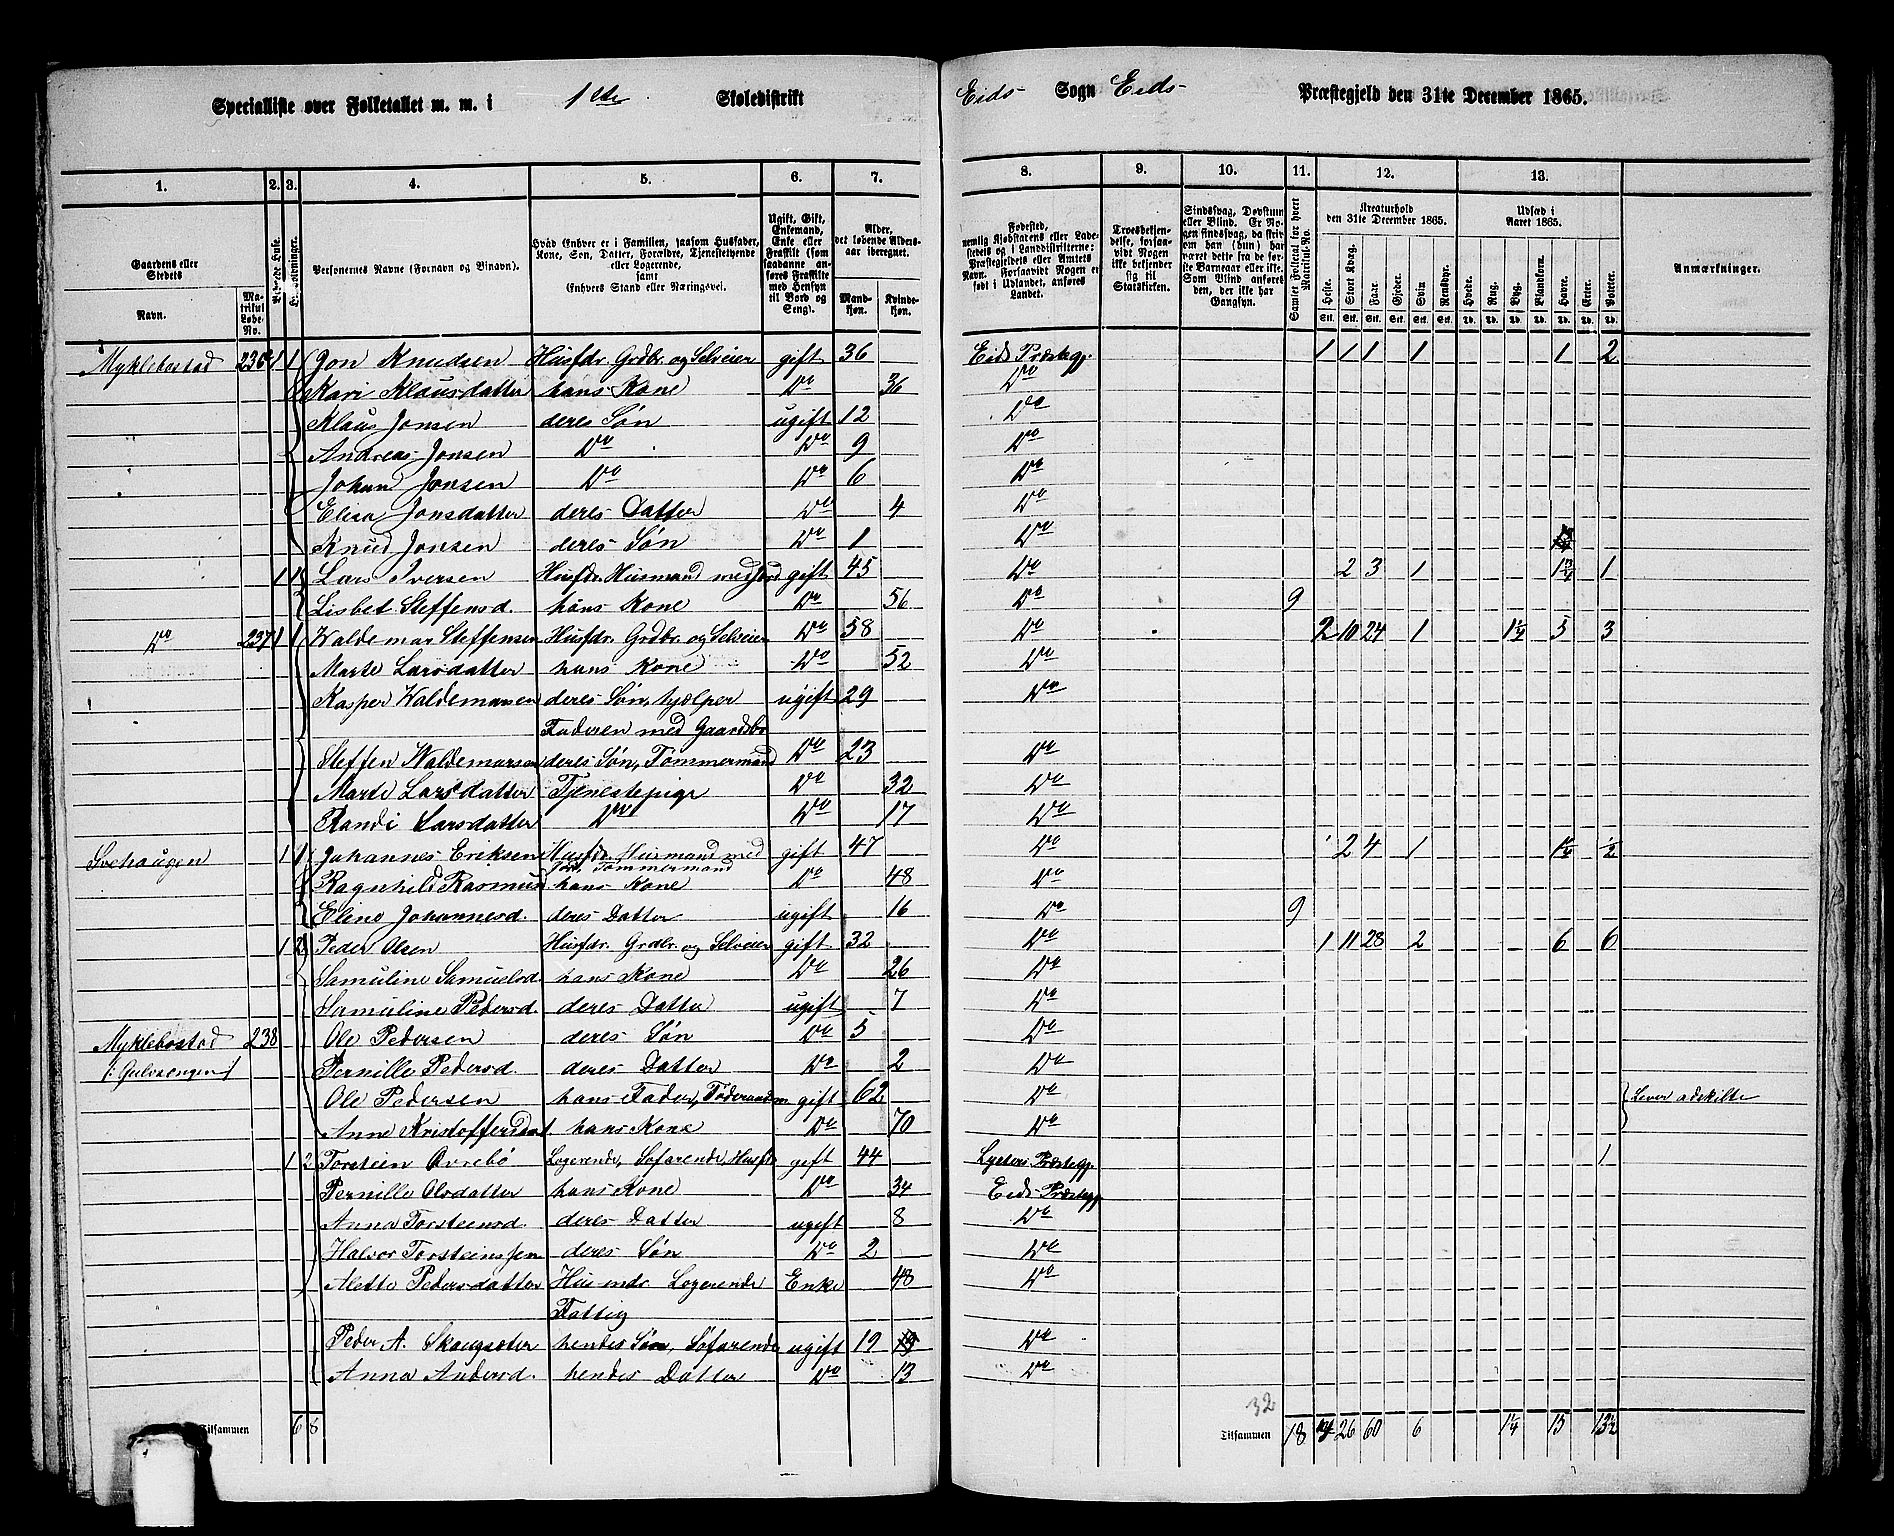 Specialliste over Folketallet m. m. i 1ste Skoledistrikt Eids Sogn Eids Præstegjeld den 31te December 1865.
1. 2. 3. 4. 5. 6. 7. 8. 9. 10. 11. 12. 13.
Gaardens eller Stedets
Navn.
Matrikul Løbe-No.
Beboede Huse.
Husholdninger.
Personernes Navne (Fornavn og Binavn).
Hvad Enhver er i Familien, saasom Husfader, Kone, Søn, Datter, Forældre, Tjenestetyende eller Logerende,
samt
Enhvers Stand eller Næringsvei.
Ugift, Gift, Enkemand, Enke eller Fraskilt (som saadanne anføres Fraskilte med Hensyn til Bord og Seng).
Alder, det løbende Alders-aar iberegnet.
Mandkjøn. Kvindekjøn.
Fødested, nemlig Kjøbstadens eller Ladestedets og i Landdistrikterne: Præstegjeldets eller Amtets Navn. Forsaavidt Nogen er født i Udlandet, anføres Landet.
Troesbekjendelse, forsaavidt Nogen ikke bekjender sig til Statskirken.
Sindssvag, Døvstum eller Blind. Er Nogen sindssvag, da skrives om han (hun) har været dette fra de første Barneaar eller ikke. Som Blind anføres den, der ikke har Gangsyn.
Samlet Folketal for hvert Matrikul-No.
Kreaturhold den 31te December 1865.
Heste. Stort Kvæg. Faar. Gjeder. Svin. Rensdyr.
Udsæd i Aaret 1865.
Hvede. Rug. Byg. Blandkorn. Havre. Erter. Poteter.
Anmærkninger.
Myklebostad 236 1 1 Jon Knudsen Husfdr. Grdbr. og Selveier gift 36 Eids Præstegj. 1 1 1 1 1 2
Kari Klausdatter hans Kone Do 36 Do
Klaus Jonsen deres Søn ugift 12 Do
Andreas Jonsen Do Do 9 Do
Johan Jonsen Do Do 6 Do
Elisa Jonsdatter deres Datter Do 4 Do
Knud Jonsen deres Søn Do 1 Do
1 1 Lars Iversen Husfdr. Husmand med Jord gift 45 Do 2 3 1 1 3/4 1
Lisbet Steffensd. hans Kone Do 56 Do 9
Do 237 1 1 Waldemar Steffensen Husfdr. Grdbr. og Selveier Do 58 Do 2 10 24 1 1 1/4 5 3
Marte Larsdatter hans Kone Do 52 Do
Kasper Waldemarsen deres Søn, hjælper ugift 29 Do
Faderen med Gaardsbr.
Steffen Waldemarsen deres Søn, Tømmermand Do 23 Do
Marte Larsdatter Tjenestepige Do 32 Do
Randi Larsdatter Do Do 17 Do
Svehaugen 1 1 Johannes Eriksen Husfdr. Husmand med gift 47 Do 2 4 1 1 1/4 1/2
Jord, Tømmermand
Ragnhild Rasmusd hans Kone Do 48 Do
Eline Johannesd. deres Datter ugift 16 Do 9
1 2 Peder Olsen Husfdr. Grdbr. og Selveier gift 32 Do 1 11 28 2 6 6
Samuline Samuelsd. hans Kone Do 26 Do
Samuline Pedersd. deres Datter ugift 7 Do
Myklebostad 238 Ole Pedersen deres Søn Do 5 Do
Pernille Pedersd. deres Datter Do 2 Do
Ole Pedersen hans Fader, Føderaadm gift 62 Do Lever adskilte
Anne Kristoffersdat. hans Kone Do 70 Do
1 2 Torstein Ovrebø Logerende, Søfarende, Husfdr gift 44 Lysters Præstegj. 1
Pernille Olsdatter hans Kone Do 34 Eids Præstegj
Anna Torsteinsd. deres Datter ugift 8 Do
Halvor Torsteinssen deres Søn Do 2 Do
Alette Pedersdatter Husmdr. Logerende Enke 48 Do
Fattig
Peder A. Skaugsæter hendes Søn, Søfarende ugift 19 Do
Anna Andersd. hendes Datter Do 13 Do
32
Tilsammen 6 8 Tilsammen 18 4 26 60 6 1 1/4 15 13 1/2